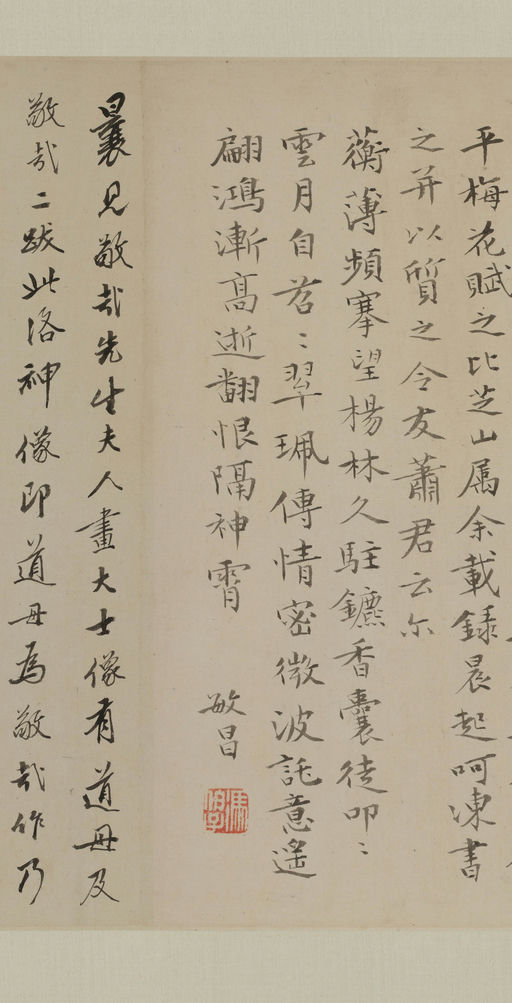 平梅花賦之比芝山属余載錄晨起呵凍書
之并以質之令友蕭君云尔
蘅薄頻搴望楊林久駐鑣香囊徒叩〻
雲月自苕〻翠珮傳情密微波託意遙
翩鴻漸高逝翻恨隔神霄
敏昌
曩見敬哉先生夫人畫大士像有道毋及
敬哉二跋此洛神像即道毋為敬哉作乃